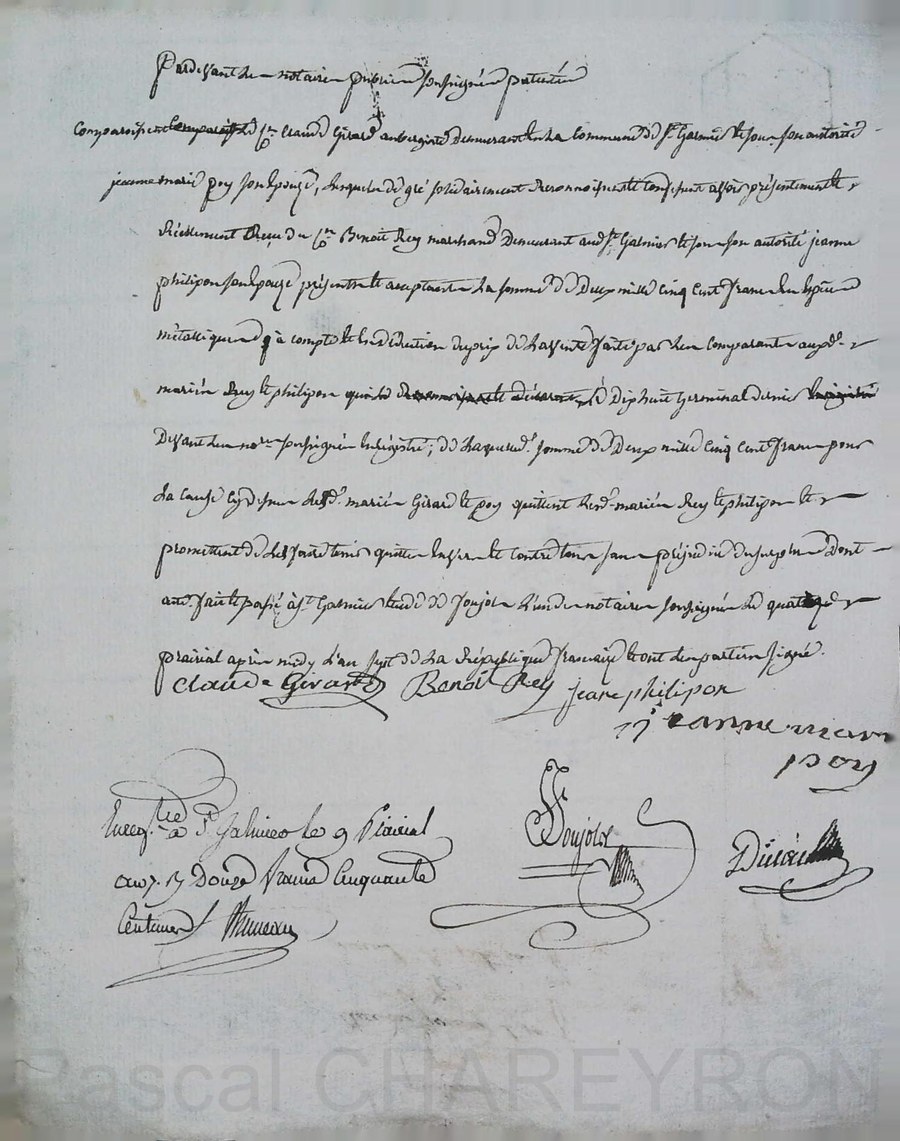 Pardevant les notaires publics soussignés patentés
Comparoissent le Cen Claude Girard aubergiste demeurant en la commune de St. Galmier et sous son autorité
jeanne marie poy son épouze, lesquels de gré solidairement reconnoissent et confessent avoir présentement et
Réellement Reçu du Cen Benoit Rey marchand demeurant aud. St. Galmier et sous son autorité jeanne
philipon son épouze présents et acceptants la somme de Deux mille cinq cent francs en espèces
métalliques à compte et en déduction du prix de la vente faite par les comparants auxd.
mariés Rey et philipon le Dixhuit Germinal dernier
Devant les nores soussignés enregistré; de laquelle d. somme de Deux mille cinq cent francs pour
la cause cydessus lesd. mariés Girard et poy quittent lesd. mariés Rey et philipon et
promettent de les faire tenir quittes envers et contre tous sans préjudice du surplus Dont
acte fait et passé à St. Galmier étude de Joujols l'un des notaires soussignés le quatre
prairial après midy l'an sept de la République française et ont les parties signé.
Claude Girard Benoit Rey jeane philipon
jeanne marie
poy
Enregtré à St Galmier le 9 Prairial
an 7. Douze francs Cinquante
Centimes
Joujols